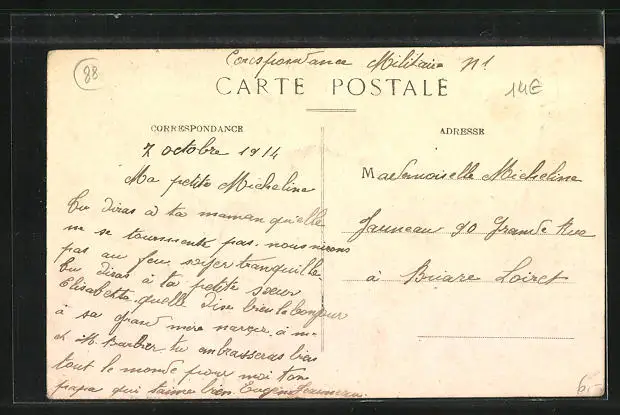 88
Corespondance Militaire N1
CARTE POSTALE
14€
CORRESPONDANCE
ADRESSE
7 octobre 1914
Ma petite Micheline
Tu diras à ta maman qu'elle
ne se tourmente pas. nous nirons
pas au feu. soyer tranquille
Tu diras à ta petite sœur
Elisabette quelle dise bien le bonjour
à sa grand mère à
et M. Barbier. tu ambrasseras bien
tout le monde pour moi ton
papa qui taime bien. Eugène Jauneau
Mademoiselle Micheline
Jauneau 90 Grande Rue
à Briare Loiret
6,-